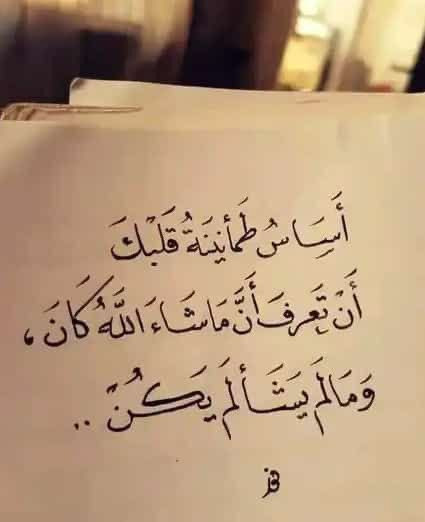 أَسَاسُ طَمأنِينَةُ قَلبْكَ
أَنْ تَعِرفَ أَنَّ مَا شَاءَ اللَّهُ كَانَ،
وَمَا لَمْ يَشَأ لَمْ يَكُنْ..